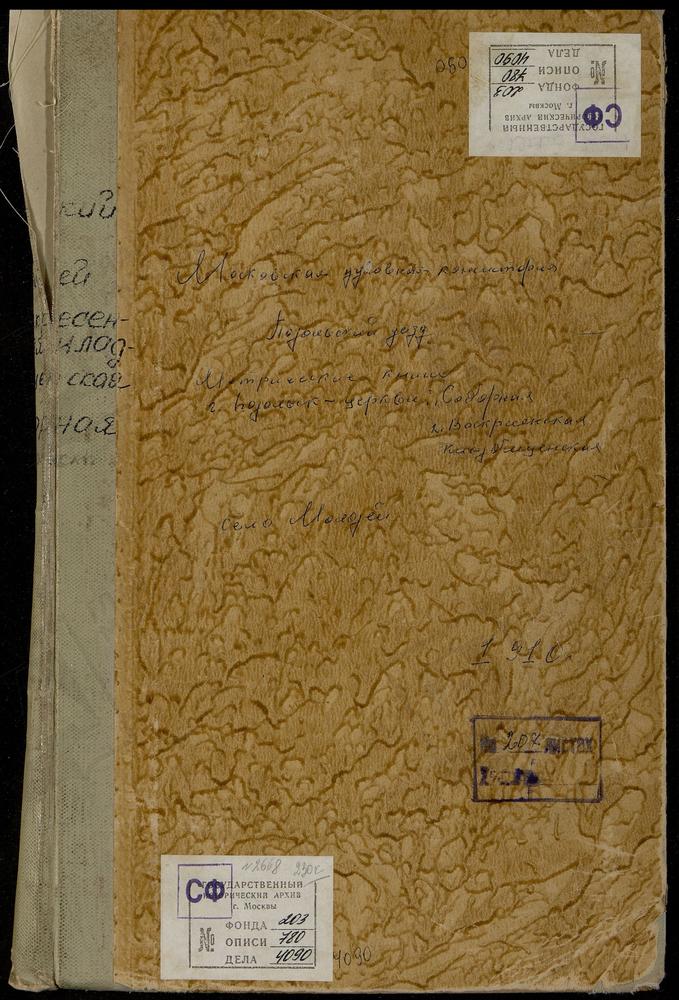 ГОСУДАРСТВЕННЫЙ
ИСТОРИЧЕСКИЙ АРХИВ
г. Москвы
СФ
№
ФОНДА 203
ОПИСИ 780
ДЕЛА 4090
кий
ей
есен-
млад-
ская
ная
Московская духовная консистория
Подольский уезд
Метрические книги
г. Подольск - церкви: 1. Соборная
2. Воскресенская
село Молодей
1910
На 207 листах
№2668 230
СФ
ГОСУДАРСТВЕННЫЙ
ИСТОРИЧЕСКИЙ АРХИВ
г. Москвы
№
ФОНДА 203
ОПИСИ 780
ДЕЛА 4090
4090